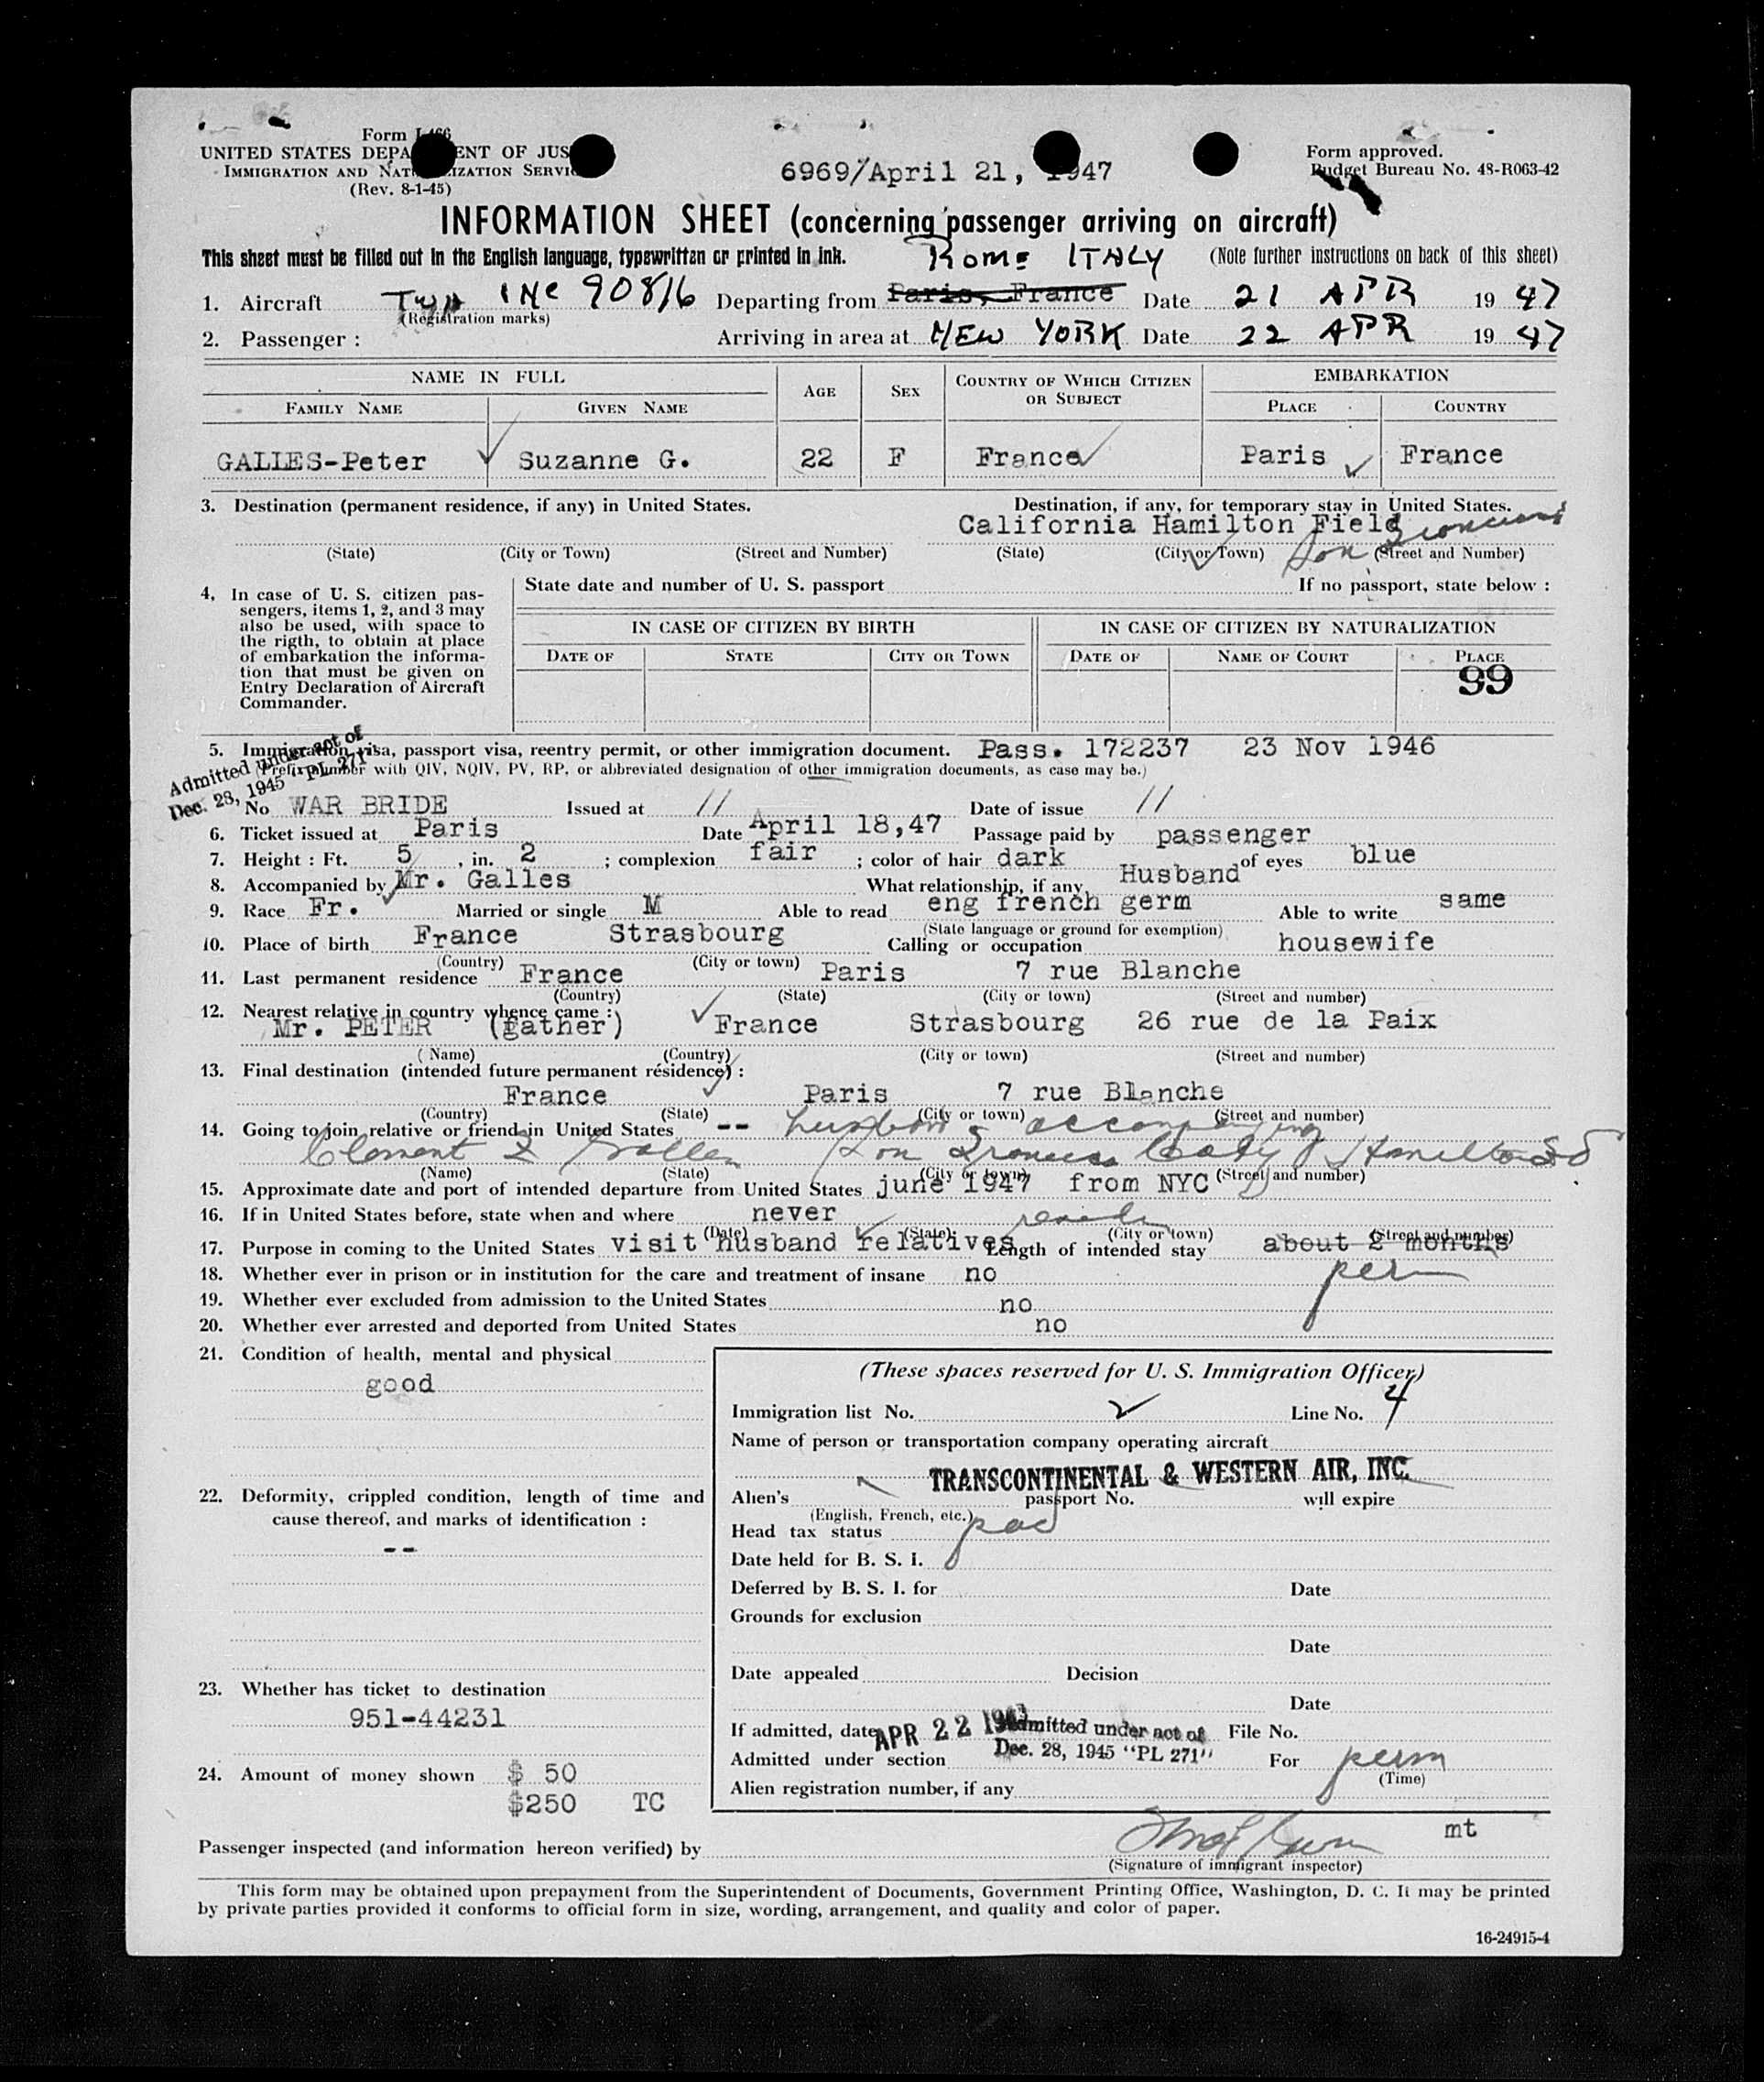 Form I-466
UNITED STATES DEPA ENT OF JUS
IMMIGRATION AND NAT IZATION SERVI
(Rev. 8-1-45)
6969/April 21, 1947
Form approved.
Budget Bureau No. 43-R063-42
INFORMATION SHEET (concerning passenger arriving on aircraft)
This sheet must be filled out in the English language, typewritten or printed in ink. Rome ITALY (Note further instructions on back of this sheet)
1. Aircraft TWA INC 90816 Departing from Paris, France Date 21 APR 19 47
(Registration marks)
2. Passenger : Arriving in area at NEW YORK Date 22 APR 19 47
NAME IN FULL AGE SEX COUNTRY OF WHICH CITIZEN OR SUBJECT EMBARKATION
FAMILY NAME GIVEN NAME PLACE COUNTRY
GALLES-Peter Suzanne G. 22 F France Paris France
3. Destination (permanent residence, if any) in United States. Destination, if any, for temporary stay in United States.
California Hamilton Field San Francisco
(State) (City or Town) (Street and Number) (State) (City or Town) (Street and Number)
4. In case of U. S. citizen pas-
sengers, items 1, 2, and 3 may
also be used, with space to
the rigth, to obtain at place
of embarkation the informa-
tion that must be given on
Entry Declaration of Aircraft
Commander.
State date and number of U. S. passport If no passport, state below :
IN CASE OF CITIZEN BY BIRTH IN CASE OF CITIZEN BY NATURALIZATION
DATE OF STATE CITY OR TOWN DATE OF NAME OF COURT PLACE
99
5. Immigration visa, passport visa, reentry permit, or other immigration document. Pass. 172237 23 Nov 1946
(Prefix number with QIV, NQIV, PV, RP, or abbreviated designation of other immigration documents, as case may be.)
Admitted under act of
Dec. 28, 1945 "PL 271"
No WAR BRIDE Issued at // Date of issue //
6. Ticket issued at Paris Date April 18,47 Passage paid by passenger
7. Height : Ft. 5 , in. 2 ; complexion fair ; color of hair dark of eyes blue
8. Accompanied by Mr. Galles What relationship, if any Husband
9. Race Fr. Married or single M Able to read eng french germ Able to write same
(State language or ground for exemption)
10. Place of birth France Strasbourg Calling or occupation housewife
(Country) (City or town)
11. Last permanent residence France Paris 7 rue Blanche
(Country) (State) (City or town) (Street and number)
12. Nearest relative in country whence came :
Mr. PETER (gather) France Strasbourg 26 rue de la Paix
(Name) (Country) (City or town) (Street and number)
13. Final destination (intended future permanent résidence) :
France Paris 7 rue Blanche
(Country) (State) (City or town) (Street and number)
14. Going to join relative or friend in United States -- husband accompanying
Clement Galles San Francisco Hamilton
(Name) (State) (City or town) (Street and number)
15. Approximate date and port of intended departure from United States june 1947 from NYC
16. If in United States before, state when and where never
(Date) (State) (City or town) (Street and number)
17. Purpose in coming to the United States visit husband relatives reside Length of intended stay about 2 months
perm
18. Whether ever in prison or in institution for the care and treatment of insane no
19. Whether ever excluded from admission to the United States no
20. Whether ever arrested and deported from United States no
21. Condition of health, mental and physical
good
22. Deformity, crippled condition, length of time and
cause thereof, and marks of identification :
--
23. Whether has ticket to destination
951-44231
24. Amount of money shown $ 50
$250 TC
(These spaces reserved for U. S. Immigration Officer)
Immigration list No. 2 Line No. 4
Name of person or transportation company operating aircraft
TRANSCONTINENTAL & WESTERN AIR, INC.
Alien's passport No. will expire
(English, French, etc.)
Head tax status
Date held for B. S. I.
Deferred by B. S. I. for Date
Grounds for exclusion
Date
Date appealed Decision
Date
If admitted, date APR 22 1947 Admitted under act of File No.
Admitted under section Dec. 28, 1945 "PL 271" For perm
(Time)
Alien registration number, if any
mt
Passenger inspected (and information hereon verified) by
(Signature of immigrant inspector)
This form may be obtained upon prepayment from the Superintendent of Documents, Government Printing Office, Washington, D. C. It may be printed
by private parties provided it conforms to official form in size, wording, arrangement, and quality and color of paper.
16-24915-4